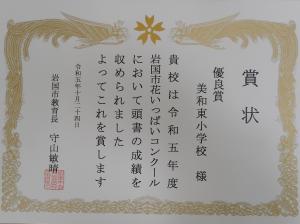 賞状
優良賞
美和東小学校 様
貴校は令和五年度
岩国市花いっぱいコンクール
において頭書の成績を
収められました
よってこれを賞します
令和五年十月二十四日
岩国市教育長 守山敏晴